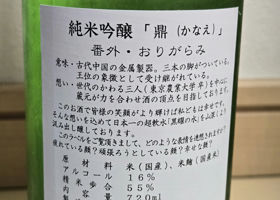 純米吟醸「鼎(かなえ)」
番外・おりがらみ
意味・古代中国の金属製器。三本の脚がついている。
王位の象徴として受け継がれている。
想い・世のかわる三人(東京農業大学卒)を中心に
蔵元が力を合わせ酒の頂点を目指しております。
このお酒で皆様の笑顔がより輝けば私どもは幸せです。
そんな想いを込めて日本一の超軟水「黒耀の水」を山深く
汲み出し醸しております。
このラベルをご覧頂きまして、どのような表情を連想されますか
疲れている顔?頑張ろうとしている顔?幸せな顔?
原材料 米(国産)、米麹(国産米)
アルコール 16%
精米歩合 55%
内容量 720ml